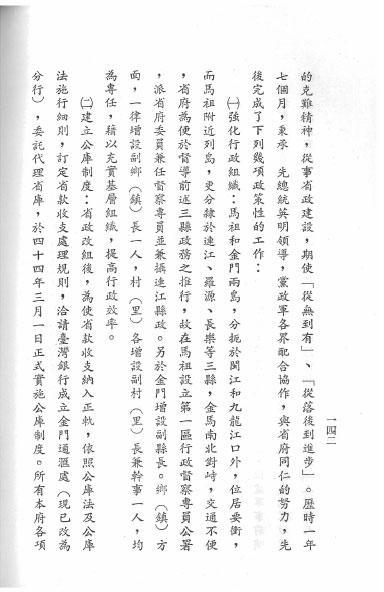 一四二
的克難精神，從事省政建設，期使「從無到有」、「從落後到進步」。歷時一年
七個月，秉承　先總統英明領導，黨政軍各界配合協作，與省府同仁的努力，先
後完成了下列幾項政策性的工作：
㈠強化行政組織：馬祖和金門兩島，分扼於閩江和九龍江口外，位居要衝，
而馬祖附近列島，更分隸於連江、羅源、長樂等三縣，金馬南北對峙，交通不便
，省府為便於督導前述三縣政務之推行，故在馬祖設立第一區行政督察專員公署
，派省府委員兼任督察專員並兼攝連江縣政。另於金門增設副縣長。鄉（鎮）方
面，一律增設副鄉（鎮）長一人，村（里）各增設副村（里）長兼幹事一人，均
為專任，藉以充實基層組織，提高行政效率。
㈡建立公庫制度：省政改組後，為使省款收支納入正軌，依照公庫法及公庫
法施行細則，訂定省款收支處理規則，洽請臺灣銀行成立金門通滙處（現已改為
分行），委託代理省庫，於四十四年三月一日正式實施公庫制度。所有本府各項